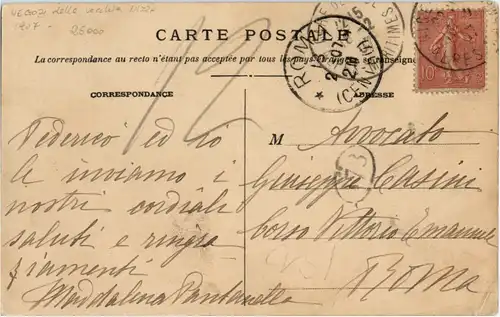 1907 -
25000
12
CARTE POSTALE
La correspondance au recto n'étant pas acceptée par tous les pays
CORRESPONDANCE
ADRESSE
Federico ed io
le inviamo i
nostri cordiali
saluti e ringra
ziamenti
Maddalena Pantanella
M Avvocato
Giuseppe Casini
Corso Vittorio Emanuele
Roma
ROMA
10